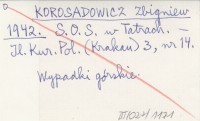 KOROSADOWICZ Zbigniew
1942. S.O.S. w Tatrach. –
Il. Kur. Pol. (Kraków) 3, nr 14.
Wypadki górskie.